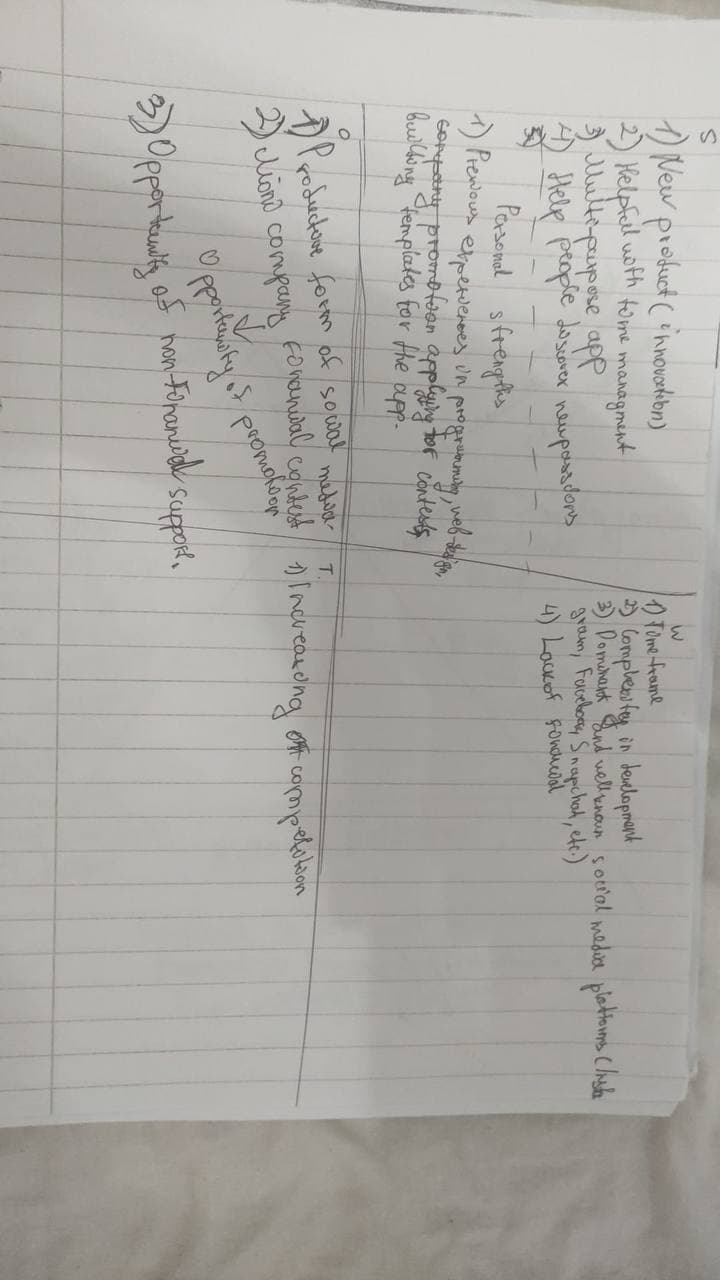 S
1) New product (innovation)
2) Helpful with time managment
3) Multi-purpose app
4) Help people discover new passions
5)
Personal strengths
1) Previous experiences in programming, web-design,
company promotion applying for contests,
building templates for the app.
W
1) Time-frame
2) Complexitey in development
3) Dominant and well known social media platforms (Insta
gram, Facebook, Snapchat, etc.)
4) Lack of financial
O
1) Productive form of social media.
2) company financial contest
Opportunity of promotion
3) Opportunity of non-financial support.
T.
1) Increasing competition